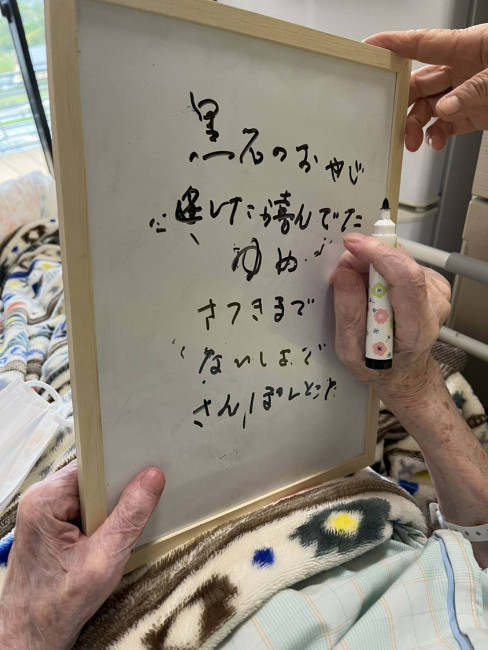 黒石のおやじ
達したか喜んでた
ゆめ
さっきまで
ないしょで
さんぽしとった